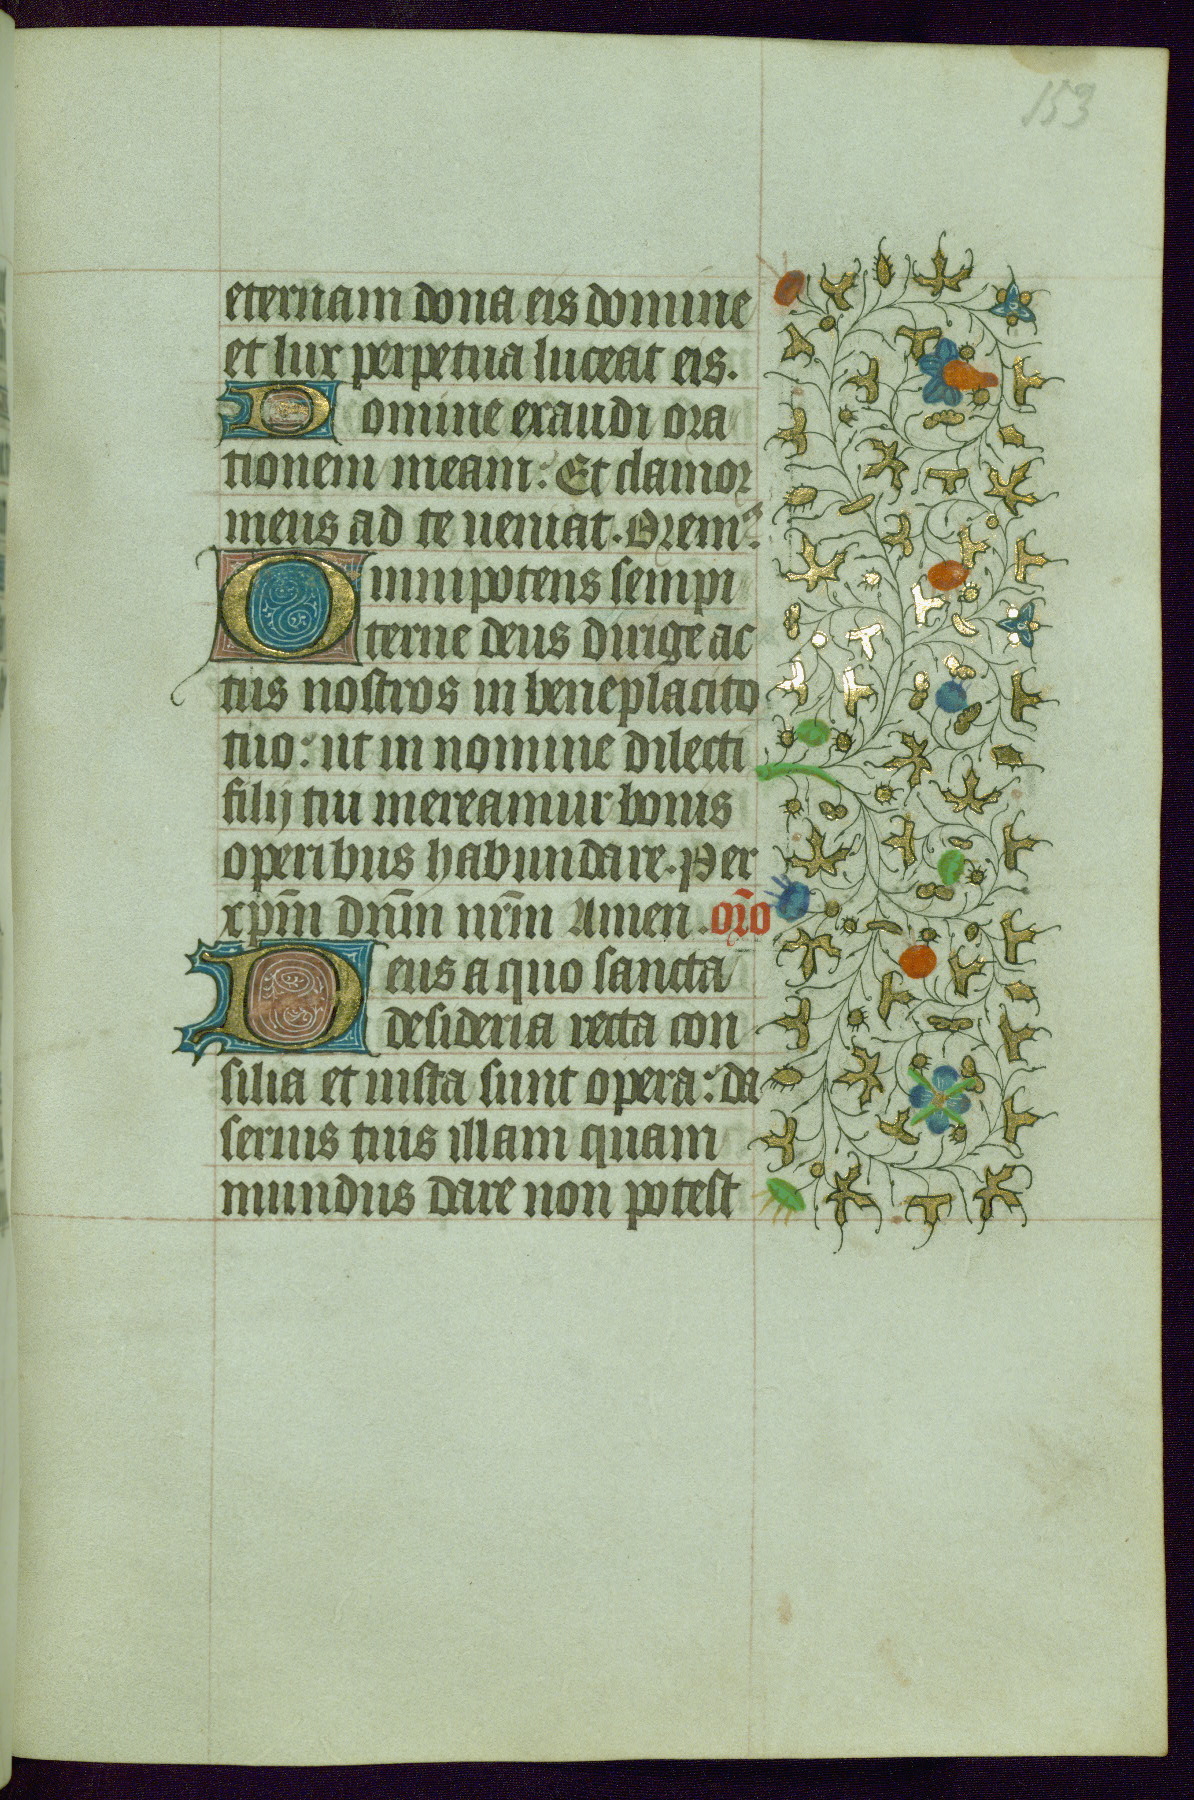 153
eternam dona eis domine
et lux perpetua luceat eis.
Domine exaudi ora
tionem meam: Et clamor
meus ad te ueniat. Orem⁹.
Omnipotens sempi
terne deus dirige ac
tus nostros in beneplacito
tuo: ut in nomine dilecti
filij tui mereamur bonis
operibus habundare. Per
xp̄m dn̄m nr̄m Amen. or̄o
Deus a quo sancta
desideria recta con
silia et iusta sunt opera: da
seruis tuis illam quam
mundus dare non potest